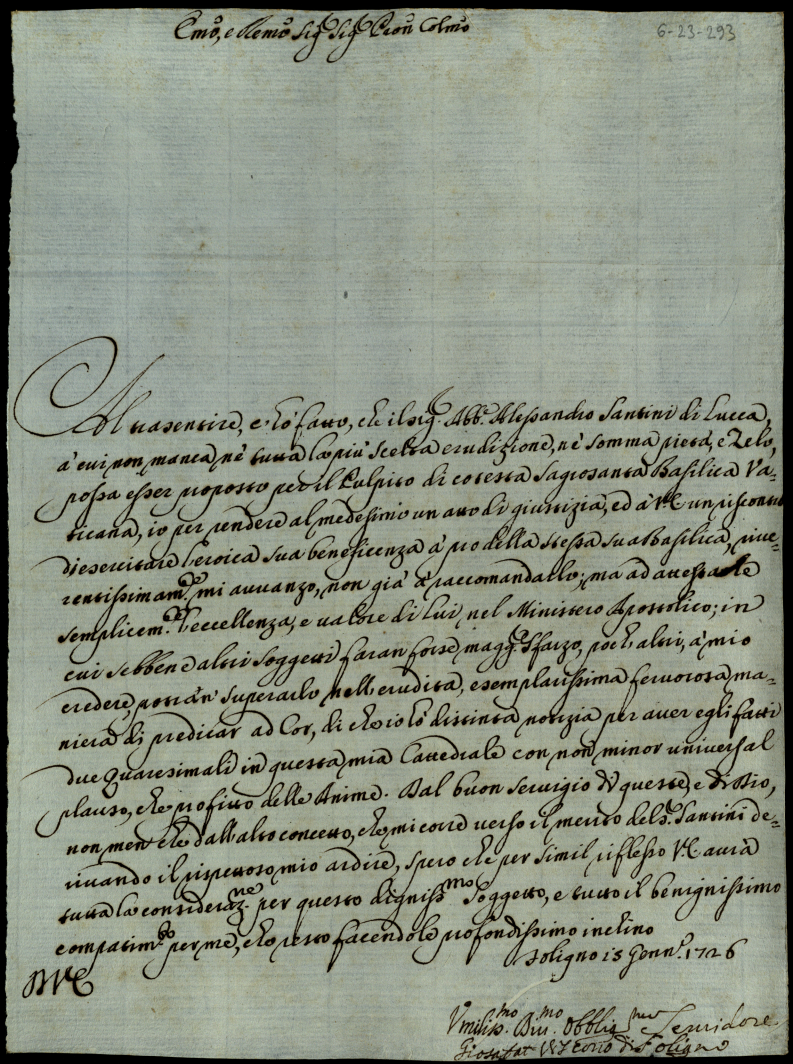 Emo, e Remo Sig.r Sig.r Pron Colmo
6-23-293
Al trasentire, e hò fatto, che il Sig.r Abb.e Alessandro Santini di Lucca,
à cui non manca nè tutta la più scelta erudizione, nè somma pietà, e Zelo,
possa esser proposto per il Pulpito di cotesta Sagrosanta Basilica Va=
ticana, io per rendere al medesimo un atto di giustizia, ed à V.E. un riscontro
di esercitare l'eroica sua beneficenza à pro della stessa sua Basilica, rive=
rentissimam.te mi avvanzo, non già à raccomandarlo; ma ad attestarle
semplicem.te l'eccellenza, e valore di lui nel Ministero Apostolico; in
cui sebbene altri Soggetti faran forse magg.r Sfarzo, pochi altri, à mio
credere, potràn superarlo nell'erudita, esemplarissima fervorosa ma=
niera di predicar ad Cor, di che io hò distinta notizia per aver egli fatti
due Quaresimali in questa mia Cattedrale con non minor universal
plauso, che profitto delle Anime. Dal buon servigio di queste, e di Dio,
non men che dall'alto concetto, che mi corre verso il merito del S.r Santini de=
rivando il rispettoso mio ardire, spero che per simil riflesso V.E. avrà
tutta la consideraz.ne per questo digniss.mo Soggetto, e tutto il benignissimo
compatim.to per me, che resto facendole profondissimo inchino
D V E
Foligno 15 Genn.o 1726
Vmiliss.mo Div.mo Obblig.mo Servidore
Giosafat Vescovo di Foligno